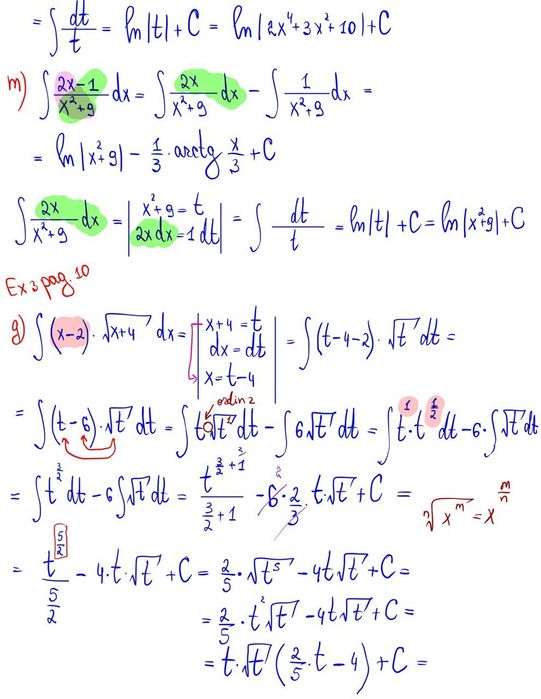 = ∫ dt/t = ln|t| + C = ln|2x⁴+3x²+10| + C
m) ∫ (2x-1)/(x²+9) dx = ∫ 2x/(x²+9) dx - ∫ 1/(x²+9) dx =
= ln|x²+9| - 1/3 · arctg x/3 + C
∫ 2x/(x²+9) dx = | x²+9 = t
2xdx = 1dt | = ∫ dt/t = ln|t| + C = ln|x²+9| + C
Ex 3 pag. 10
g) ∫ (x-2) · √(x+4) dx = | x+4 = t
dx = dt
x = t-4 | = ∫ (t-4-2) · √t dt =
ordin 2
= ∫ (t-6) · √t dt = ∫ t√t¹ dt - ∫ 6√t dt = ∫ t¹ · t^(1/2) dt - 6 · ∫ √t dt
= ∫ t^(3/2) dt - 6 ∫ √t dt = t^(3/2+1)/(3/2+1) - 6 · 2/3 t · √t + C =
ⁿ√(x^m) = x^(m/n)
= t^(5/2)/(5/2) - 4 · t · √t + C = 2/5 · √(t⁵) - 4t√t + C =
= 2/5 · t²√t - 4t√t + C =
= t · √t (2/5 · t - 4) + C =